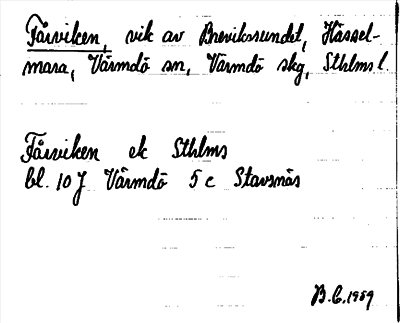 Fårviken, vik av Brevikssundet, Hässel-
mara, Värmdö sn, Värmdö skg, Sthlms l.
Fårviken ek Sthlms
bl. 10 J Värmdö 5 c Stavsnäs
B.C. 1959